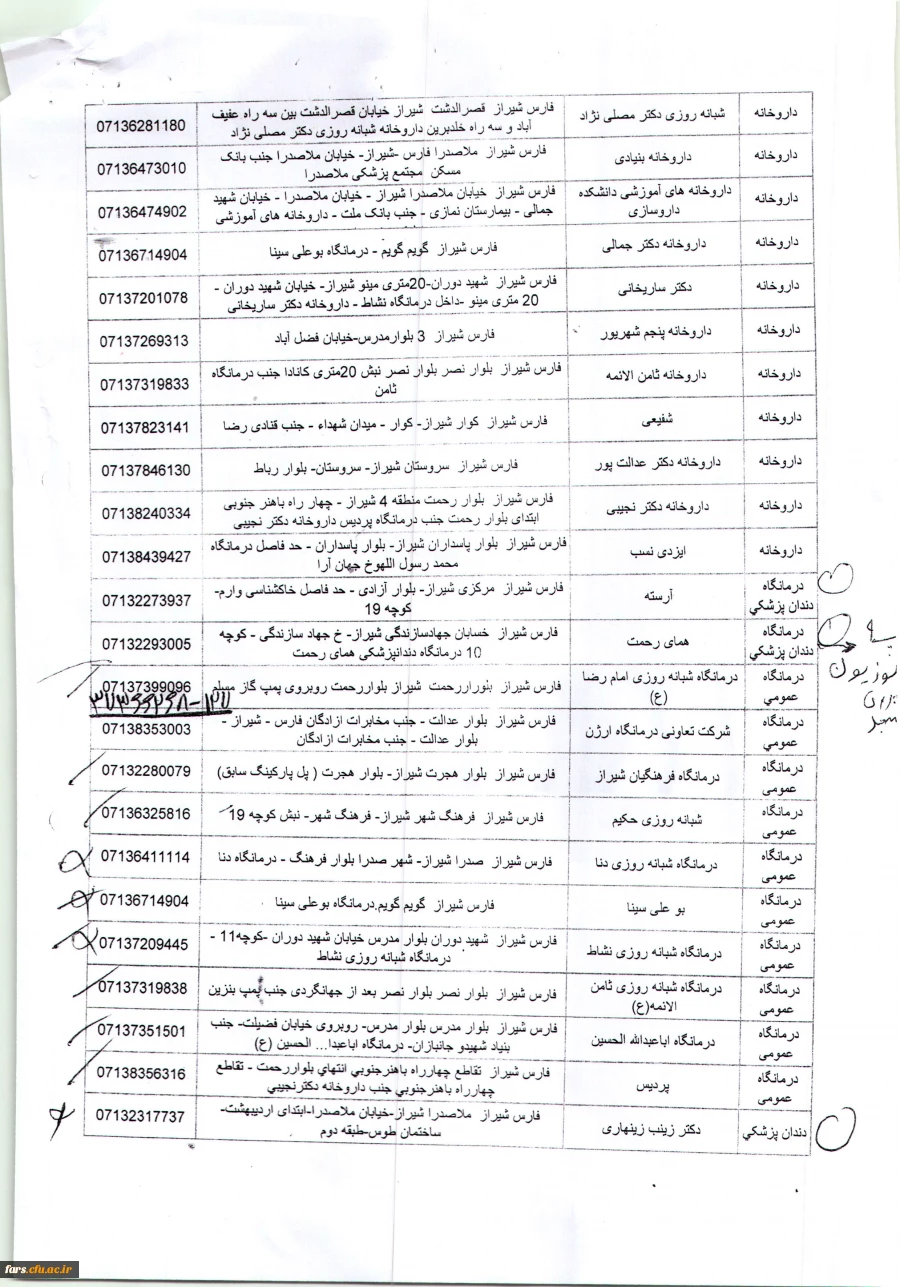 داروخانه شبانه روزی دکتر مصلی نژاد فارس شیراز قصرالدشت شیراز خیابان قصرالدشت بین سه راه عفیف 07136281180
آباد و سه راه خلدبرین داروخانه شبانه روزی دکتر مصلی نژاد
داروخانه داروخانه بنیادی فارس شیراز ملاصدرا فارس -شیراز- خیابان ملاصدرا جنب بانک 07136473010
مسکن مجتمع پزشکی ملاصدرا
داروخانه داروخانه های آموزشی دانشکده فارس شیراز خیابان ملاصدرا شیراز - خیابان ملاصدرا - خیابان شهید 07136474902
داروسازی جمالی - بیمارستان نمازی - جنب بانک ملت - داروخانه های آموزشی
داروخانه داروخانه دکتر جمالی فارس شیراز گویم گویم - درمانگاه بوعلی سینا 07136714904
داروخانه دکتر ساریخانی فارس شیراز شهید دوران-20متری مینو شیراز- خیابان شهید دوران - 07137201078
20 متری مینو -داخل درمانگاه نشاط - داروخانه دکتر ساریخانی
داروخانه داروخانه پنجم شهریور فارس شیراز 3 بلوارمدرس-خیابان فضل آباد 07137269313
داروخانه داروخانه ثامن الائمه فارس شیراز بلوار نصر بلوار نصر نبش 20متری کانادا جنب درمانگاه 07137319833
ثامن
داروخانه شفیعی فارس شیراز کوار شیراز- کوار - میدان شهداء - جنب قنادی رضا 07137823141
داروخانه داروخانه دکتر عدالت پور فارس شیراز سروستان شیراز- سروستان- بلوار رباط 07137846130
داروخانه داروخانه دکتر نجیبی فارس شیراز بلوار رحمت منطقه 4 شیراز - چهار راه باهنر جنوبی 07138240334
ابتدای بلوار رحمت جنب درمانگاه پردیس داروخانه دکتر نجیبی
داروخانه ایزدی نسب فارس شیراز بلوار پاسداران شیراز- بلوار پاسداران - حد فاصل درمانگاه 07138439427
محمد رسول اللهوخ جهان آرا
درمانگاه دندان پزشکي آرسته فارس شیراز مرکزی شیراز- بلوار آزادی - حد فاصل خاکشناسی وارم- 07132273937
کوچه 19
درمانگاه دندان پزشکي همای رحمت فارس شیراز خسابان جهادسازندگی شیراز- خ جهاد سازندگی - کوچه 07132293005
10 درمانگاه دندانپزشکی همای رحمت
درمانگاه عمومي درمانگاه شبانه روزی امام رضا (ع) فارس شیراز بلوراررحمت شیراز بلواررحمت روبروی پمپ گاز مسلم 07137399096
درمانگاه عمومي شرکت تعاونی درمانگاه ارژن فارس شیراز بلوار عدالت - جنب مخابرات ازادگان فارس - شیراز - 07138353003
بلوار عدالت - جنب مخابرات ازادگان
درمانگاه عمومی درمانگاه فرهنگیان شیراز فارس شیراز بلوار هجرت شیراز- بلوار هجرت ( پل پارکینگ سابق) 07132280079
درمانگاه عمومی شبانه روزی حکیم فارس شیراز فرهنگ شهر شیراز- فرهنگ شهر- نبش کوچه 19 07136325816
درمانگاه عمومی درمانگاه شبانه روزی دنا فارس شیراز صدرا شیراز- شهر صدرا بلوار فرهنگ - درمانگاه دنا 07136411114
درمانگاه عمومی بو علی سینا فارس شیراز گویم گویم.درمانگاه بوعلی سینا 07136714904
درمانگاه عمومی درمانگاه شبانه روزی نشاط فارس شیراز شهید دوران بلوار مدرس خیابان شهید دوران -کوچه11 - 07137209445
درمانگاه شبانه روزی نشاط
درمانگاه عمومی درمانگاه شبانه روزی ثامن الائمه(ع) فارس شیراز بلوار نصر بلوار نصر بعد از جهانگردی جنب پمپ بنزین 07137319838
درمانگاه عمومی درمانگاه اباعبدالله الحسین فارس شیراز بلوار مدرس بلوار مدرس- روبروی خیابان فضیلت- جنب 07137351501
بنیاد شهیدو جانبازان- درمانگاه اباعبدا... الحسین (ع)
درمانگاه عمومی پردیس فارس شیراز تقاطع چهارراه باهنرجنوبي انتهاي بلواررحمت - تقاطع 07138356316
چهارراه باهنرجنوبي جنب داروخانه دکترنجیبي
دندان پزشکي دکتر زینب زینهاری فارس شیراز ملاصدرا شیراز-خیابان ملاصدرا-ابتدای اردیبهشت- 07132317737
ساختمان طوس-طبقه دوم
fars.cfu.ac.ir